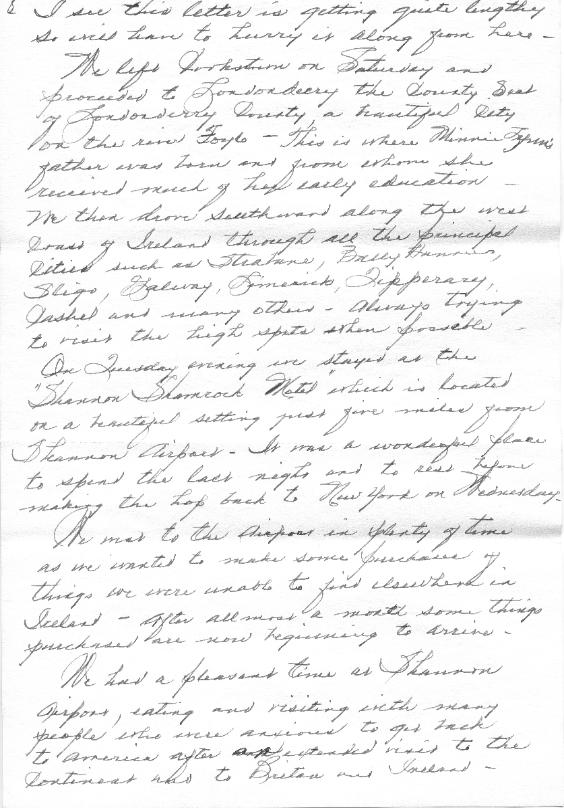 8 I see this letter is getting quite lengthy
so will have to hurry it along from here -
We left Cookstown on Saturday and
proceeded to Londonderry the County Seat
of Londonderry County, a beautiful City
on the river Foyle - This is where Minnie
father was born and from whom she
received much of her early education -
We then drove southward along the west
Coast of Ireland through all the principal
Cities such as Strabane, Bally
Sligo, Galway, Limerick, Tipperary,
Cashel and many others - Always trying
to visit the high spots when possible -
On Tuesday evening we stayed at the
"Shannon Shamrock Motel" which is located
on a beautiful setting just five miles from
Shannon Airport - It was a wonderful place
to spend the last night and to rest before
making the hop back to New York on Wednesday -
We was to the Airport in plenty of time
as we wanted to make some purchases of
things we were unable to find elsewhere in
Ireland - After allmost a month some things
purchased are now beginning to arrive -
We had a pleasant time at Shannon
Airport, eating and visiting with many
people who were anxious to get back
to America after extended visit to the
Continent and to Britan and Ireland -